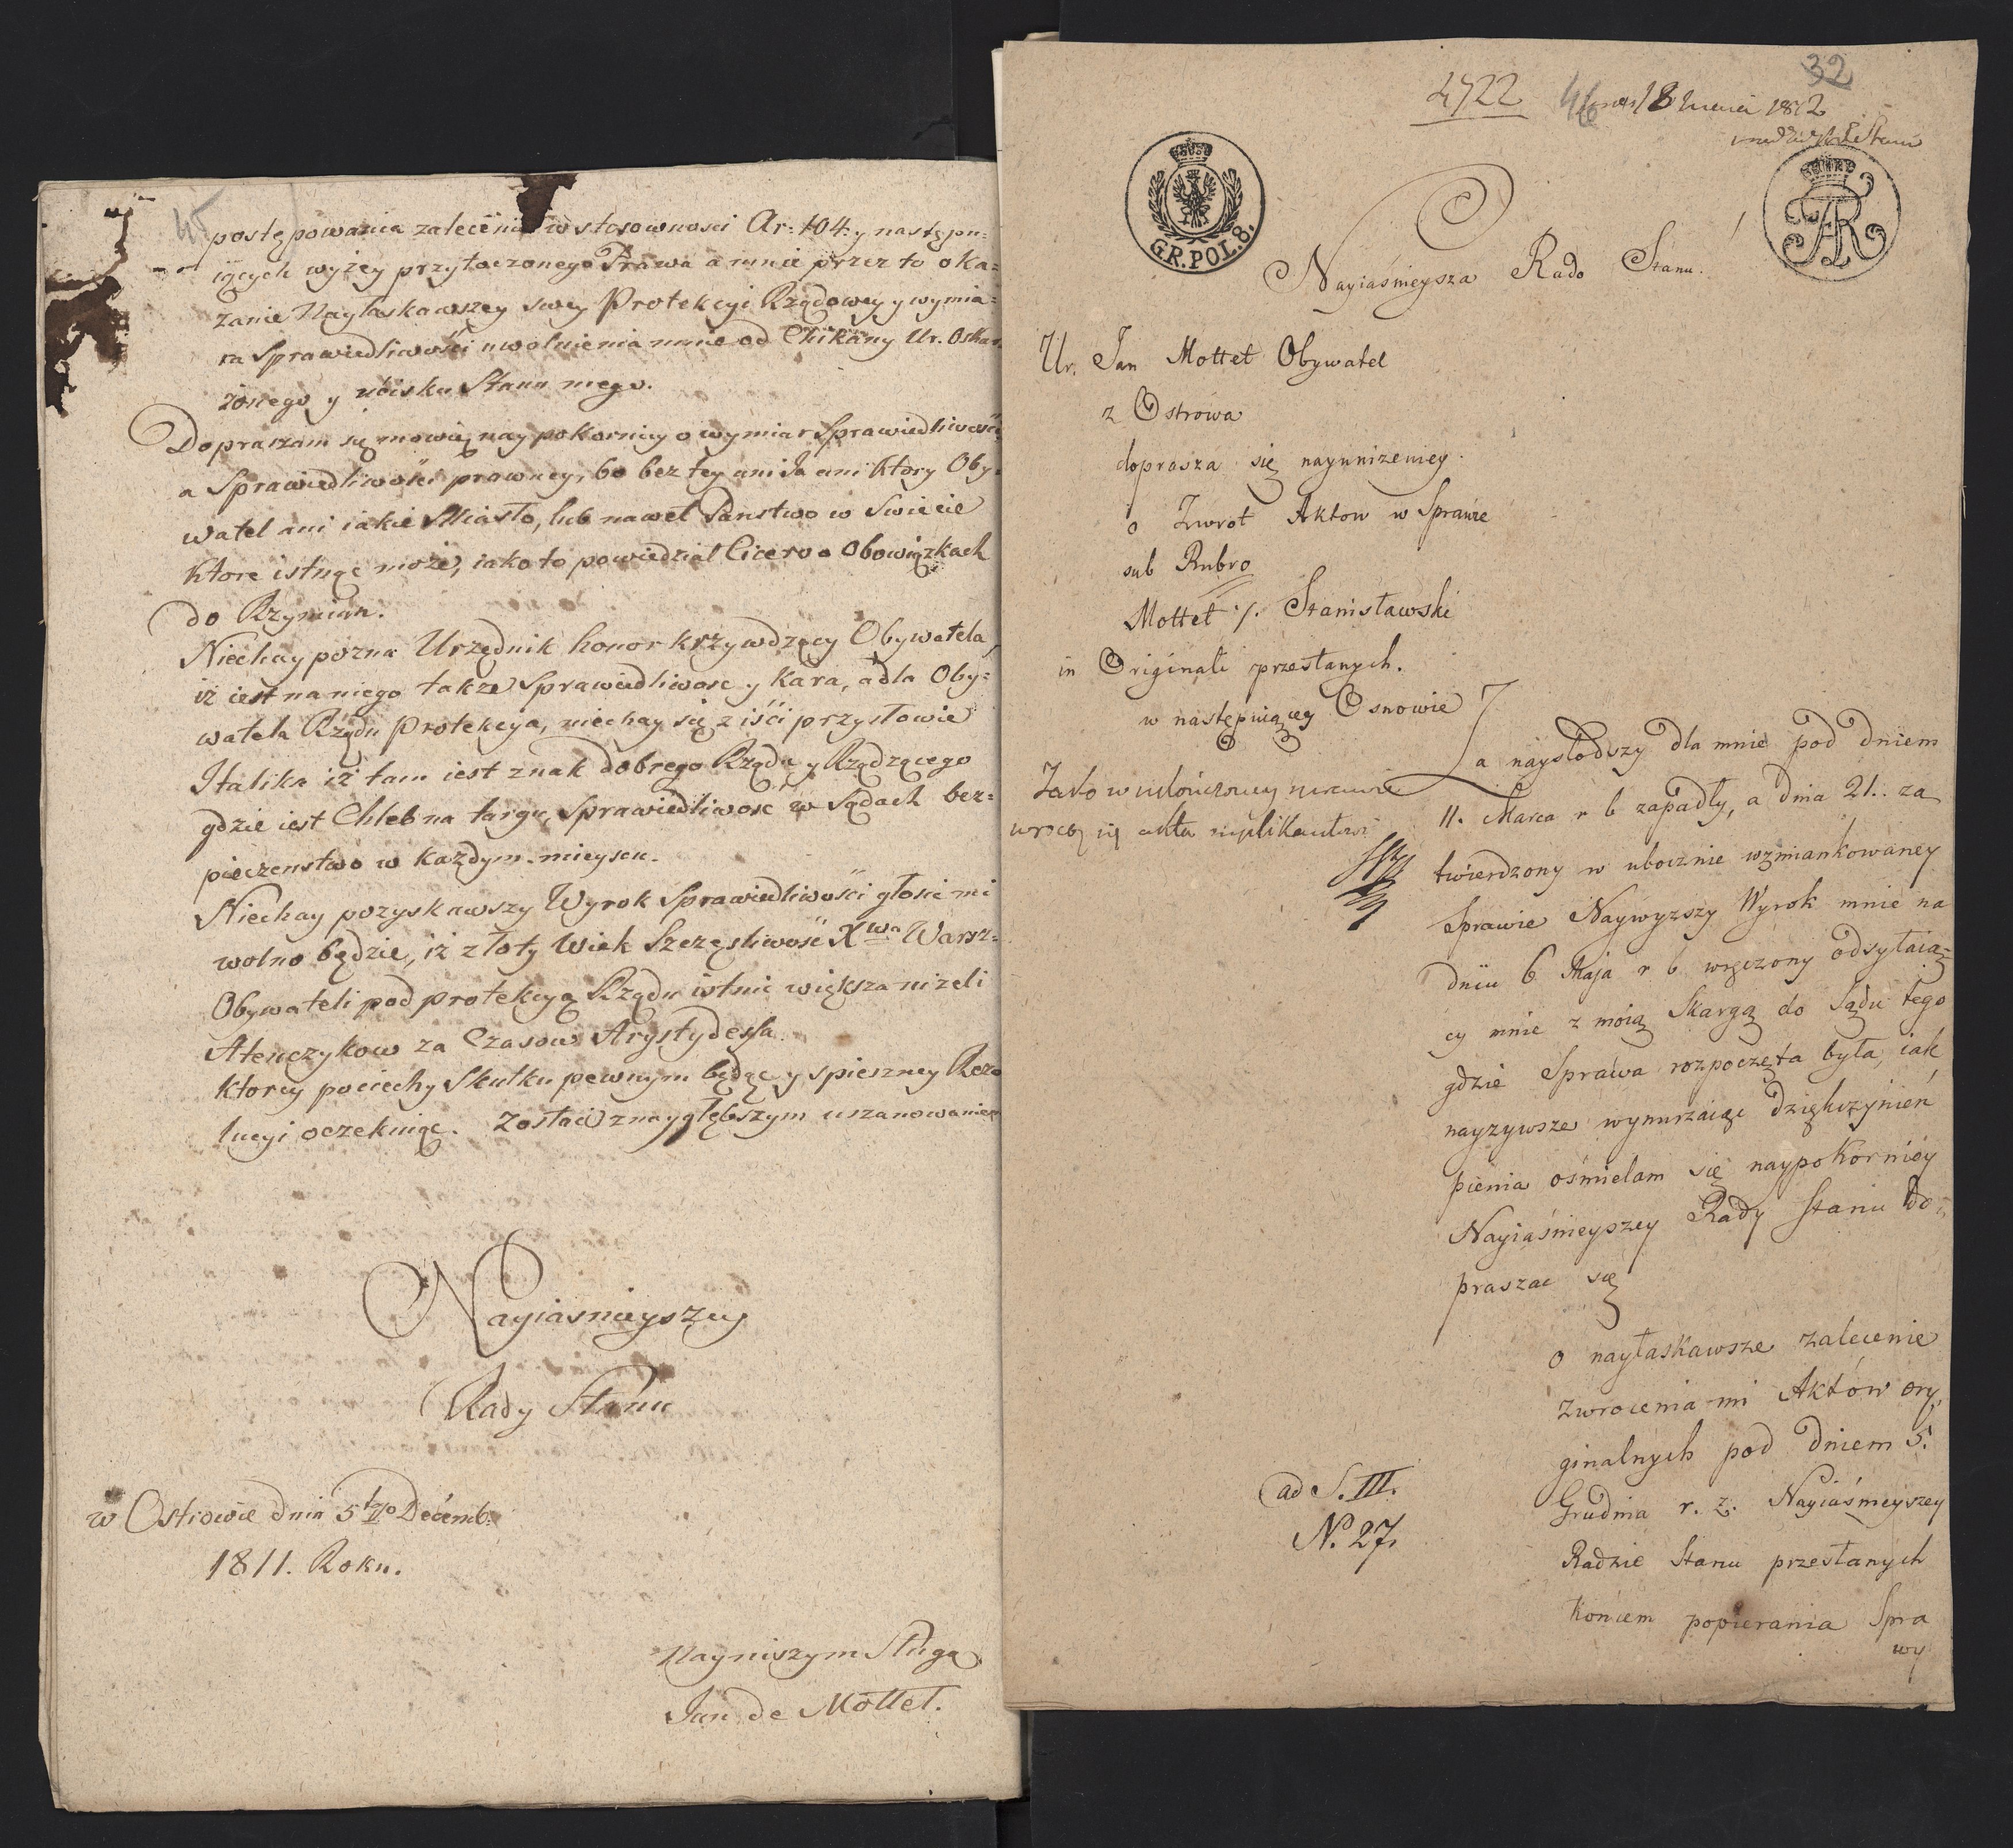 45
postępowania zalecenie w stosownosci Ar: 104: y następu=
iących wyżey przytoczonego Prawa a mnie przez to oka=
zanie Nayłaskawszey swey Protekcyi Rządowey y wymia=
ra Sprawiedliwości uwolnienia mnie od Chikany Ur. Oskar
żonego y ucisku Stanu mego.
Dopraszam się mowię naypokorniey o wymiar Sprawiedliwości
a Sprawiedliwości prawney, bo bez tey ani Ja ani który Oby=
watel ani iakie Miasto, lub nawet Panstwo w Swiecie
ktore istnąc może, iako to powiedział Cicero o Obowiązkach
do Rzymian.
Niechay pozna Urzędnik honor krzywdzący Obywatela,
iż iest na niego także Sprawiedliwosc y Kara, a dla Oby=
watela Rządu Protekcya, niechay się ziści przysłowie
Italika iż tam iest znak dobrego Rządu y Rządzącego
gdzie iest Chleb na targu, Sprawiedliwosc w Sądach bez=
pieczenstwo w każdym mieyscu.
Niechay pozyskawszy Wyrok Sprawiedliwości głosić mi
wolno będzie, iż złoty Wiek Szczęsliwość Xwa Warsz=
Obywateli pod protekcyą Rządu istnie większa niżeli
Atenczykow za Czasow Arystydessa.
ktorey pociechy Skutku pewnym będąc y spieszney Rezo
lucyi oczekuiąc. Zostaię z naygłębszym uszanowaniem
Nayiasnieyszey
Rady Stanu
w Ostrowie dnia 5tego Decemb:
1811. Roku.
Nayniszym Sługą
Jan de Mottet.
32
4722
46
18 1812
GR.POL.8.
Nayiaśnieysza Rado Stanu.
Ur. Jan Mottet Obywatel
z Ostrowa
doprasza się nayuniżeniey
o Zwrot Aktow w Sprawie
sub Rubro
Mottet ·/. Stanisławski
in Originali przesłanych.
w następuiącey Osnowie
Jako w ukończoney
wrócą się akta suplikantowi
Za naysłodszy dla mnie pod dniem
11. Marca r b zapadły, a dnia 21. za
twierdzony w ubocznie wzmiankowaney
Sprawie Naywyższy Wyrok mnie na
dniu 6 Maja r b. wręczony odsyłaią=
cy mnie z moią Skargą do Sądu tego
gdzie Sprawa rozpoczęta była, iak
nayżywsze wynurzaiąc dziękczynień
pienia ośmielam się naypokorniey
Nayiaśnieyszey Rady Stanu do=
praszac się
o nayłaskawsze zalecenie
zwrocenia mi Aktów ory,
ginalnych pod dniem 5.
Grudnia r. z. Nayiaśnieyszey
Radzie Stanu przesłanych
końcem popierania Spra
wy
ad S. III.
No. 27.